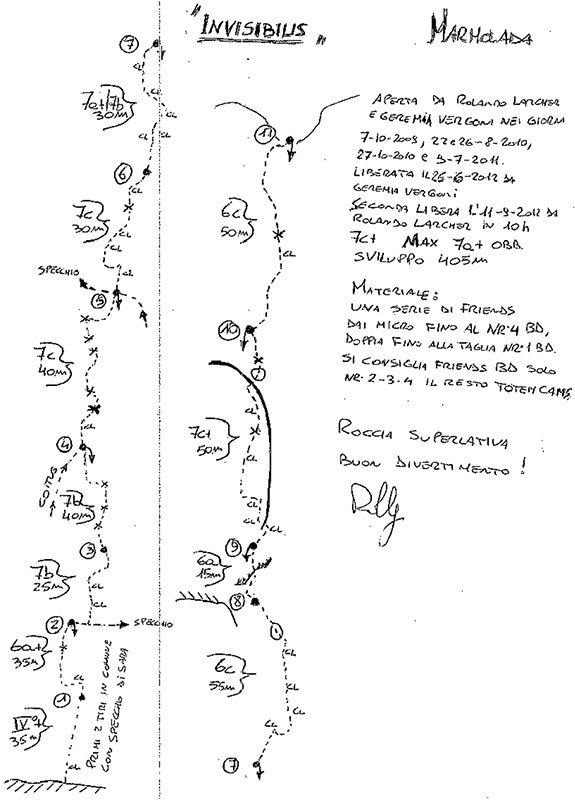 "INVISIBILIS"
MARMOLADA
APERTA DA ROLANDO LARCHER
E GEREMIA VERGONI NEI GIORNI
7-10-2009, 22 e 26-8-2010,
27-10-2010 e 3-7-2011.
LIBERATA IL 25-6-2012 DA
GEREMIA VERGONI
SECONDA LIBERA L'11-9-2012 DA
ROLANDO LARCHER IN 10h
7c+ MAX 7a+ OBB.
SVILUPPO 405m
MATERIALE:
UNA SERIE DI FRIENDS
DAI MICRO FINO AL NR.4 BD,
DOPPIA FINO ALLA TAGLIA NR.1 BD.
SI CONSIGLIA FRIENDS BD SOLO
NR. 2-3-4 IL RESTO TOTEM CAMS
ROCCIA SUPERLATIVA
BUON DIVERTIMENTO!
7
CL
7a+/7b
30m
CL
CL
6
CL
7c
30m
CL
CL
SPECCHIO
CL
5
7c
40m
4
CL
VOITUS
7b
40m
3
7b
25m
CL
CL
2
SPECCHIO
6a+
35m
CL
1
IV°+
35m
CL
PRIMI 2 TIRI IN COMUNE
CON SPECCHIO DI SARA
11
6c
50m
CL
10
7c+
50m
CL
CL
CL
CL
CL
9
6a
15m
8
6c
55m
CL
CL
CL
7